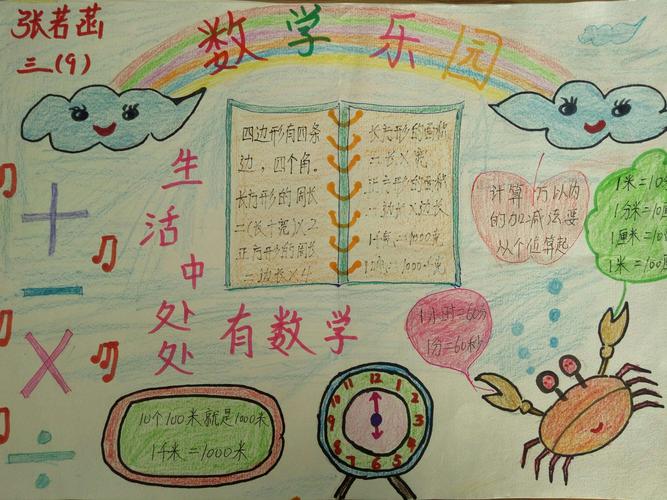 张若菡
三(9)
数学乐园
四边形有四条
边,四个角。
长方形的周长
=(长+宽)×2
正方形的周长
=边长×4
长方形的面积
=长×宽
正方形的面积
=边长×边长
=1000克
=1000千克
计算万以内
的加减法要
从个位算起
1米=10
1分米=10
1厘米=10
1米=100
生活中处处
有数学
1小时=60分
1分=60秒
10个100米就是1000米
1千米=1000米
12
1
2
3
4
5
6
7
8
9
10
11